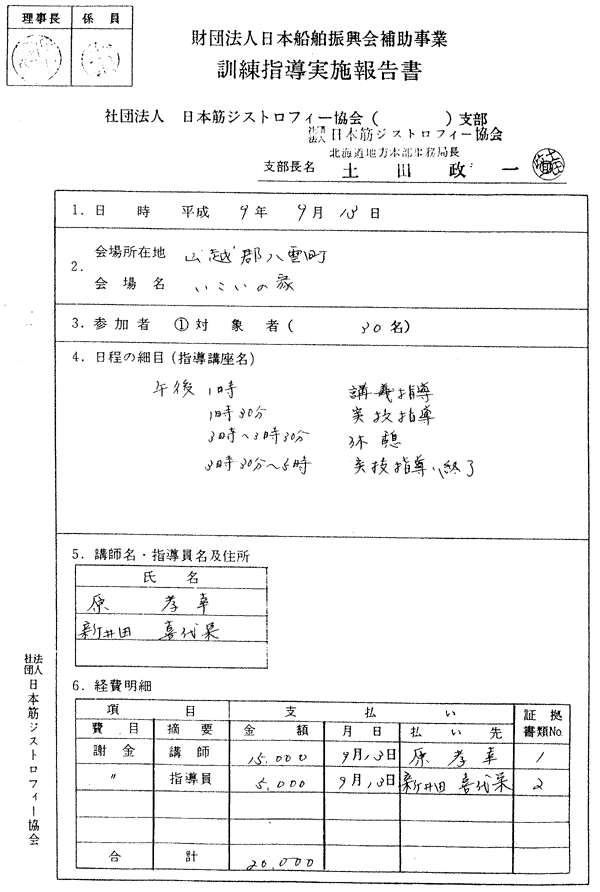 理事長 係員
財団法人日本船舶振興会補助事業
訓練指導実施報告書
社団法人 日本筋ジストロフィー協会( )支部
社団法人 日本筋ジストロフィー協会
北海道地方本部事務局長
支部長名 土田政一
1.日時 平成 9年 9月 13日
2.会場所在地 山越郡八雲町
会場名 いこいの家
3.参加者 ①対象者( 30名)
4.日程の細目(指導講座名)
午後 1時 講義指導
1時30分 実技指導
3時~3時30分 休憩
3時30分~5時 実技指導,終了
5.講師名・指導員名及住所
氏名
原 孝幸
新井田 喜代
6.経費明細
項目 支払い 証拠書類No.
費目 摘要 金額 月日 払い先
謝金 講師 15,000 9月13日 原 孝幸 1
〃 指導員 5,000 9月13日 新井田 喜代 2
合計 20,000
社団法人 日本筋ジストロフィー協会